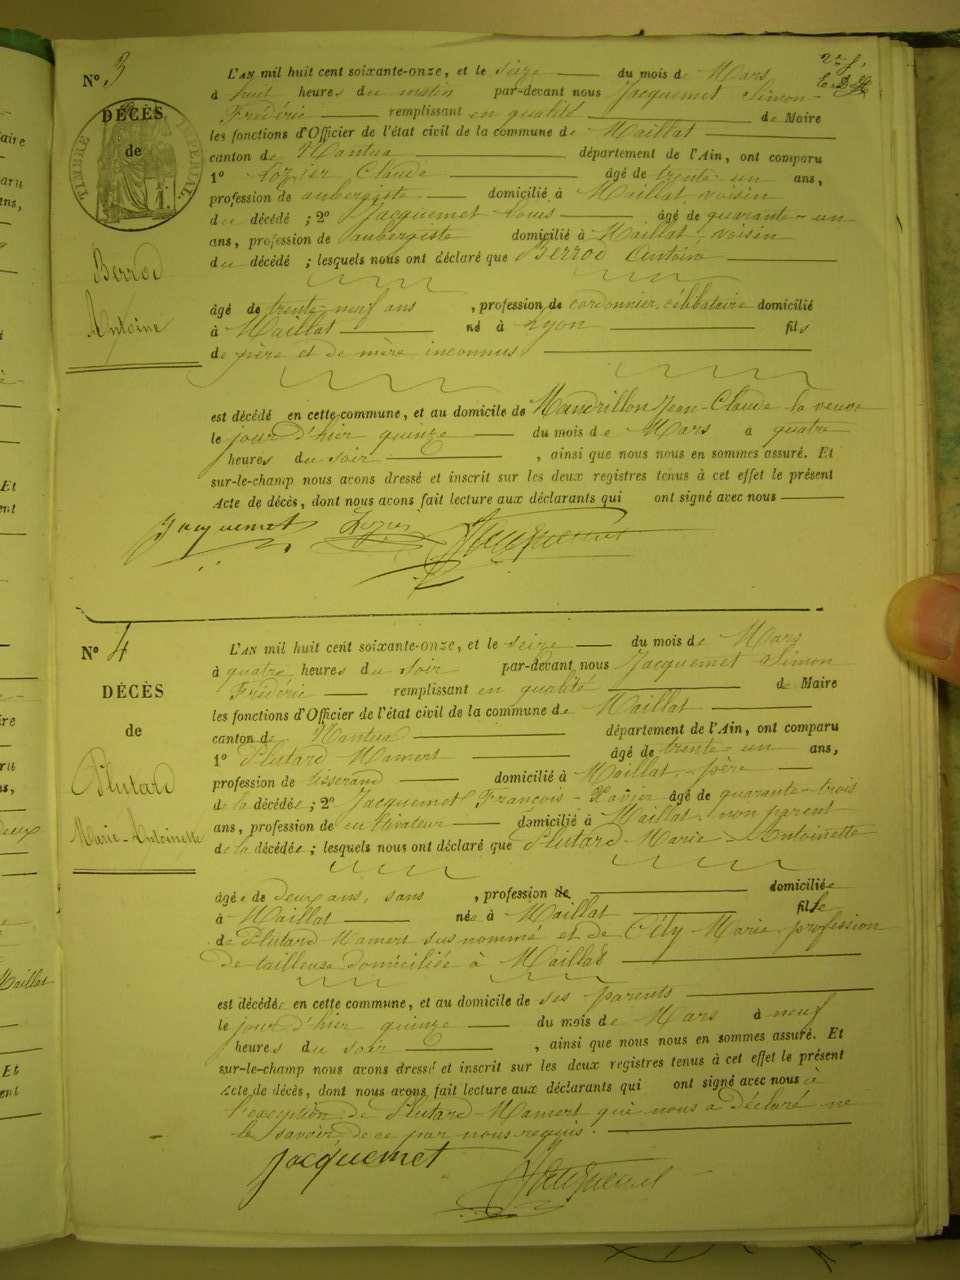 N° 3
DÉCÈS
de
TIMBRE IMPÉRIAL
Berrod
Antoine
L'AN mil huit cent soixante-onze, et le seize du mois de Mars
à huit heures du matin par-devant nous Jacquemet Simon-
Frédéric remplissant en qualité de Maire
les fonctions d'Officier de l'état civil de la commune de Maillat
canton de Nantua département de l'Ain, ont comparu
1° Claude âgé de trente-un ans,
profession de aubergiste domicilié à Maillat, voisin
du décédé ; 2° Jacquemet Louis âgé de quarante-un
ans, profession de aubergiste domicilié à Maillat, voisin
du décédé ; lesquels nous ont déclaré que Berrod Antoine
âgé de trente-neuf ans, profession de cordonnier, célibataire domicilié
à Maillat né à Lyon fils
de père et de mère inconnus
est décédé en cette commune, et au domicile de Mandrillon Jean-Claude la veuve
le jour d'hier quinze du mois de Mars à quatre
heures du soir, ainsi que nous nous en sommes assuré. Et
sur-le-champ nous avons dressé et inscrit sur les deux registres tenus à cet effet le présent
Acte de décès, dont nous avons fait lecture aux déclarants qui ont signé avec nous
Jacquemet Jacquemet
N° 4
DÉCÈS
de
Plutard
Marie-Antoinette
L'AN mil huit cent soixante-onze, et le seize du mois de Mars
à quatre heures du soir par-devant nous Jacquemet Simon
Frédéric remplissant en qualité de Maire
les fonctions d'Officier de l'état civil de la commune de Maillat
canton de Nantua département de l'Ain, ont comparu
1° Plutard Mamert âgé de trente-un ans,
profession de tisserand domicilié à Maillat, père
de la décédée ; 2° Jacquemet François-Xavier âgé de quarante-trois
ans, profession de cultivateur domicilié à Maillat, non parent
de la décédée ; lesquels nous ont déclaré que Plutard Marie-Antoinette
âgée de deux ans, sans, profession de domiciliée
à Maillat née à Maillat fille
de Plutard Mamert susnommé et de Cély Marie, profession
de tailleuse domiciliée à Maillat
est décédée en cette commune, et au domicile de ses parents
le jour d'hier quinze du mois de Mars à neuf
heures du soir, ainsi que nous nous en sommes assuré. Et
sur-le-champ nous avons dressé et inscrit sur les deux registres tenus à cet effet le présent
Acte de décès, dont nous avons fait lecture aux déclarants qui ont signé avec nous à
l'exception de Plutard Mamert qui nous a déclaré ne
le savoir de ce par nous requis.
Jacquemet Jacquemet